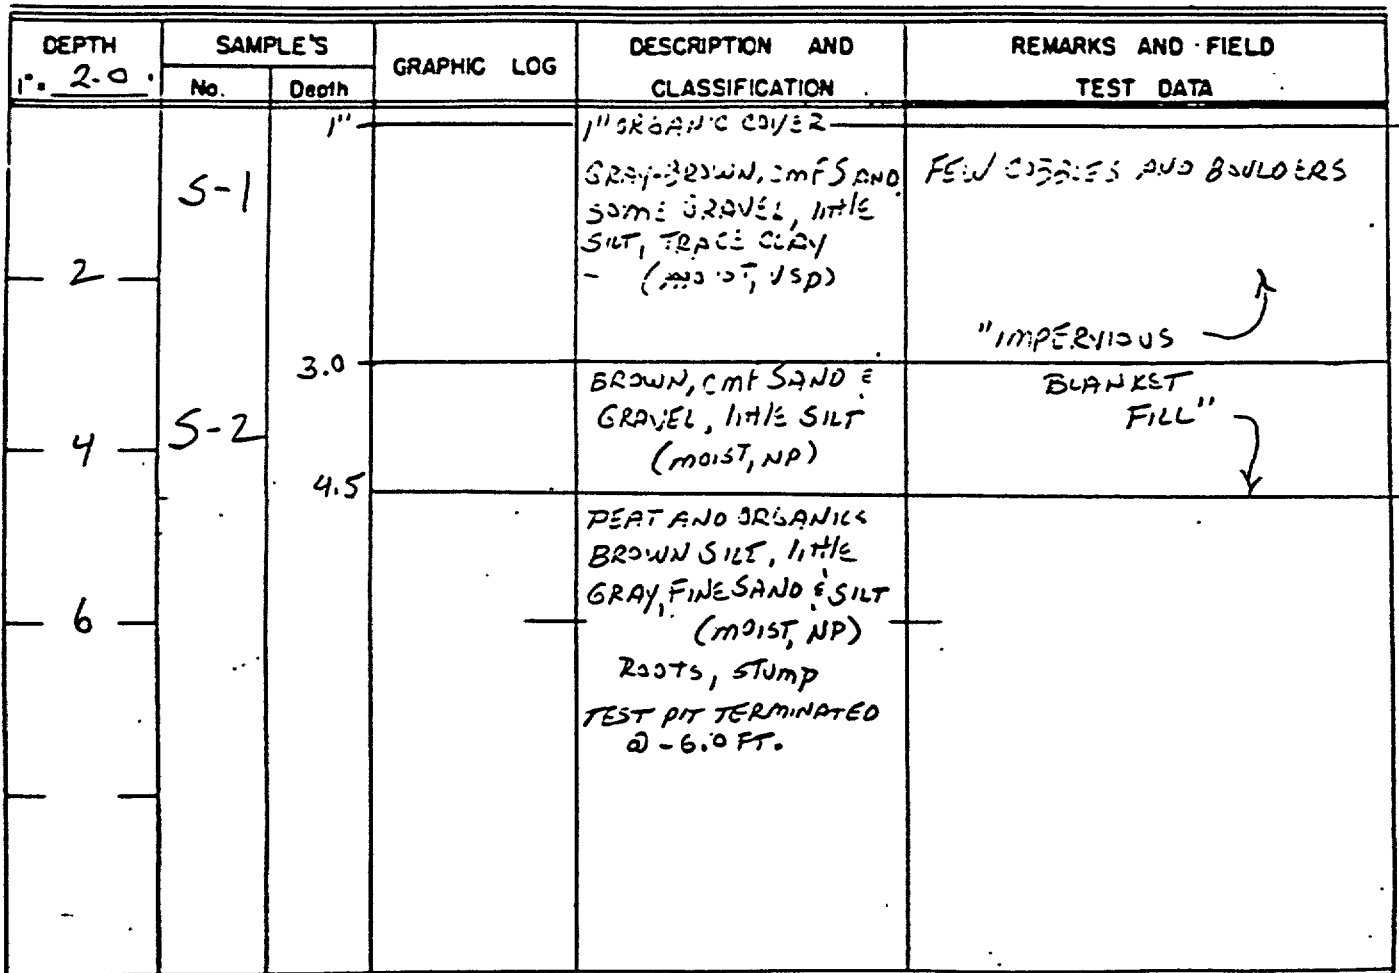 DEPTH
1" = 2.0'
SAMPLE'S
No. Depth
GRAPHIC LOG
DESCRIPTION AND
CLASSIFICATION
REMARKS AND FIELD
TEST DATA
1"
1" ORGANIC COVER
S-1
GRAY-BROWN, cmf SAND
SOME GRAVEL, little
SILT, TRACE CLAY
(MOIST, VSP)
FEW COBBLES AND BOULDERS
2
"IMPERVIOUS
3.0
BROWN, cmf SAND &
GRAVEL, little SILT
(MOIST, NP)
BLANKET
FILL"
S-2
4
4.5
PEAT AND ORGANICS
BROWN SILT, little
GRAY, FINE SAND & SILT
(MOIST, NP)
6
ROOTS, STUMP
TEST PIT TERMINATED
@ -6.0 FT.